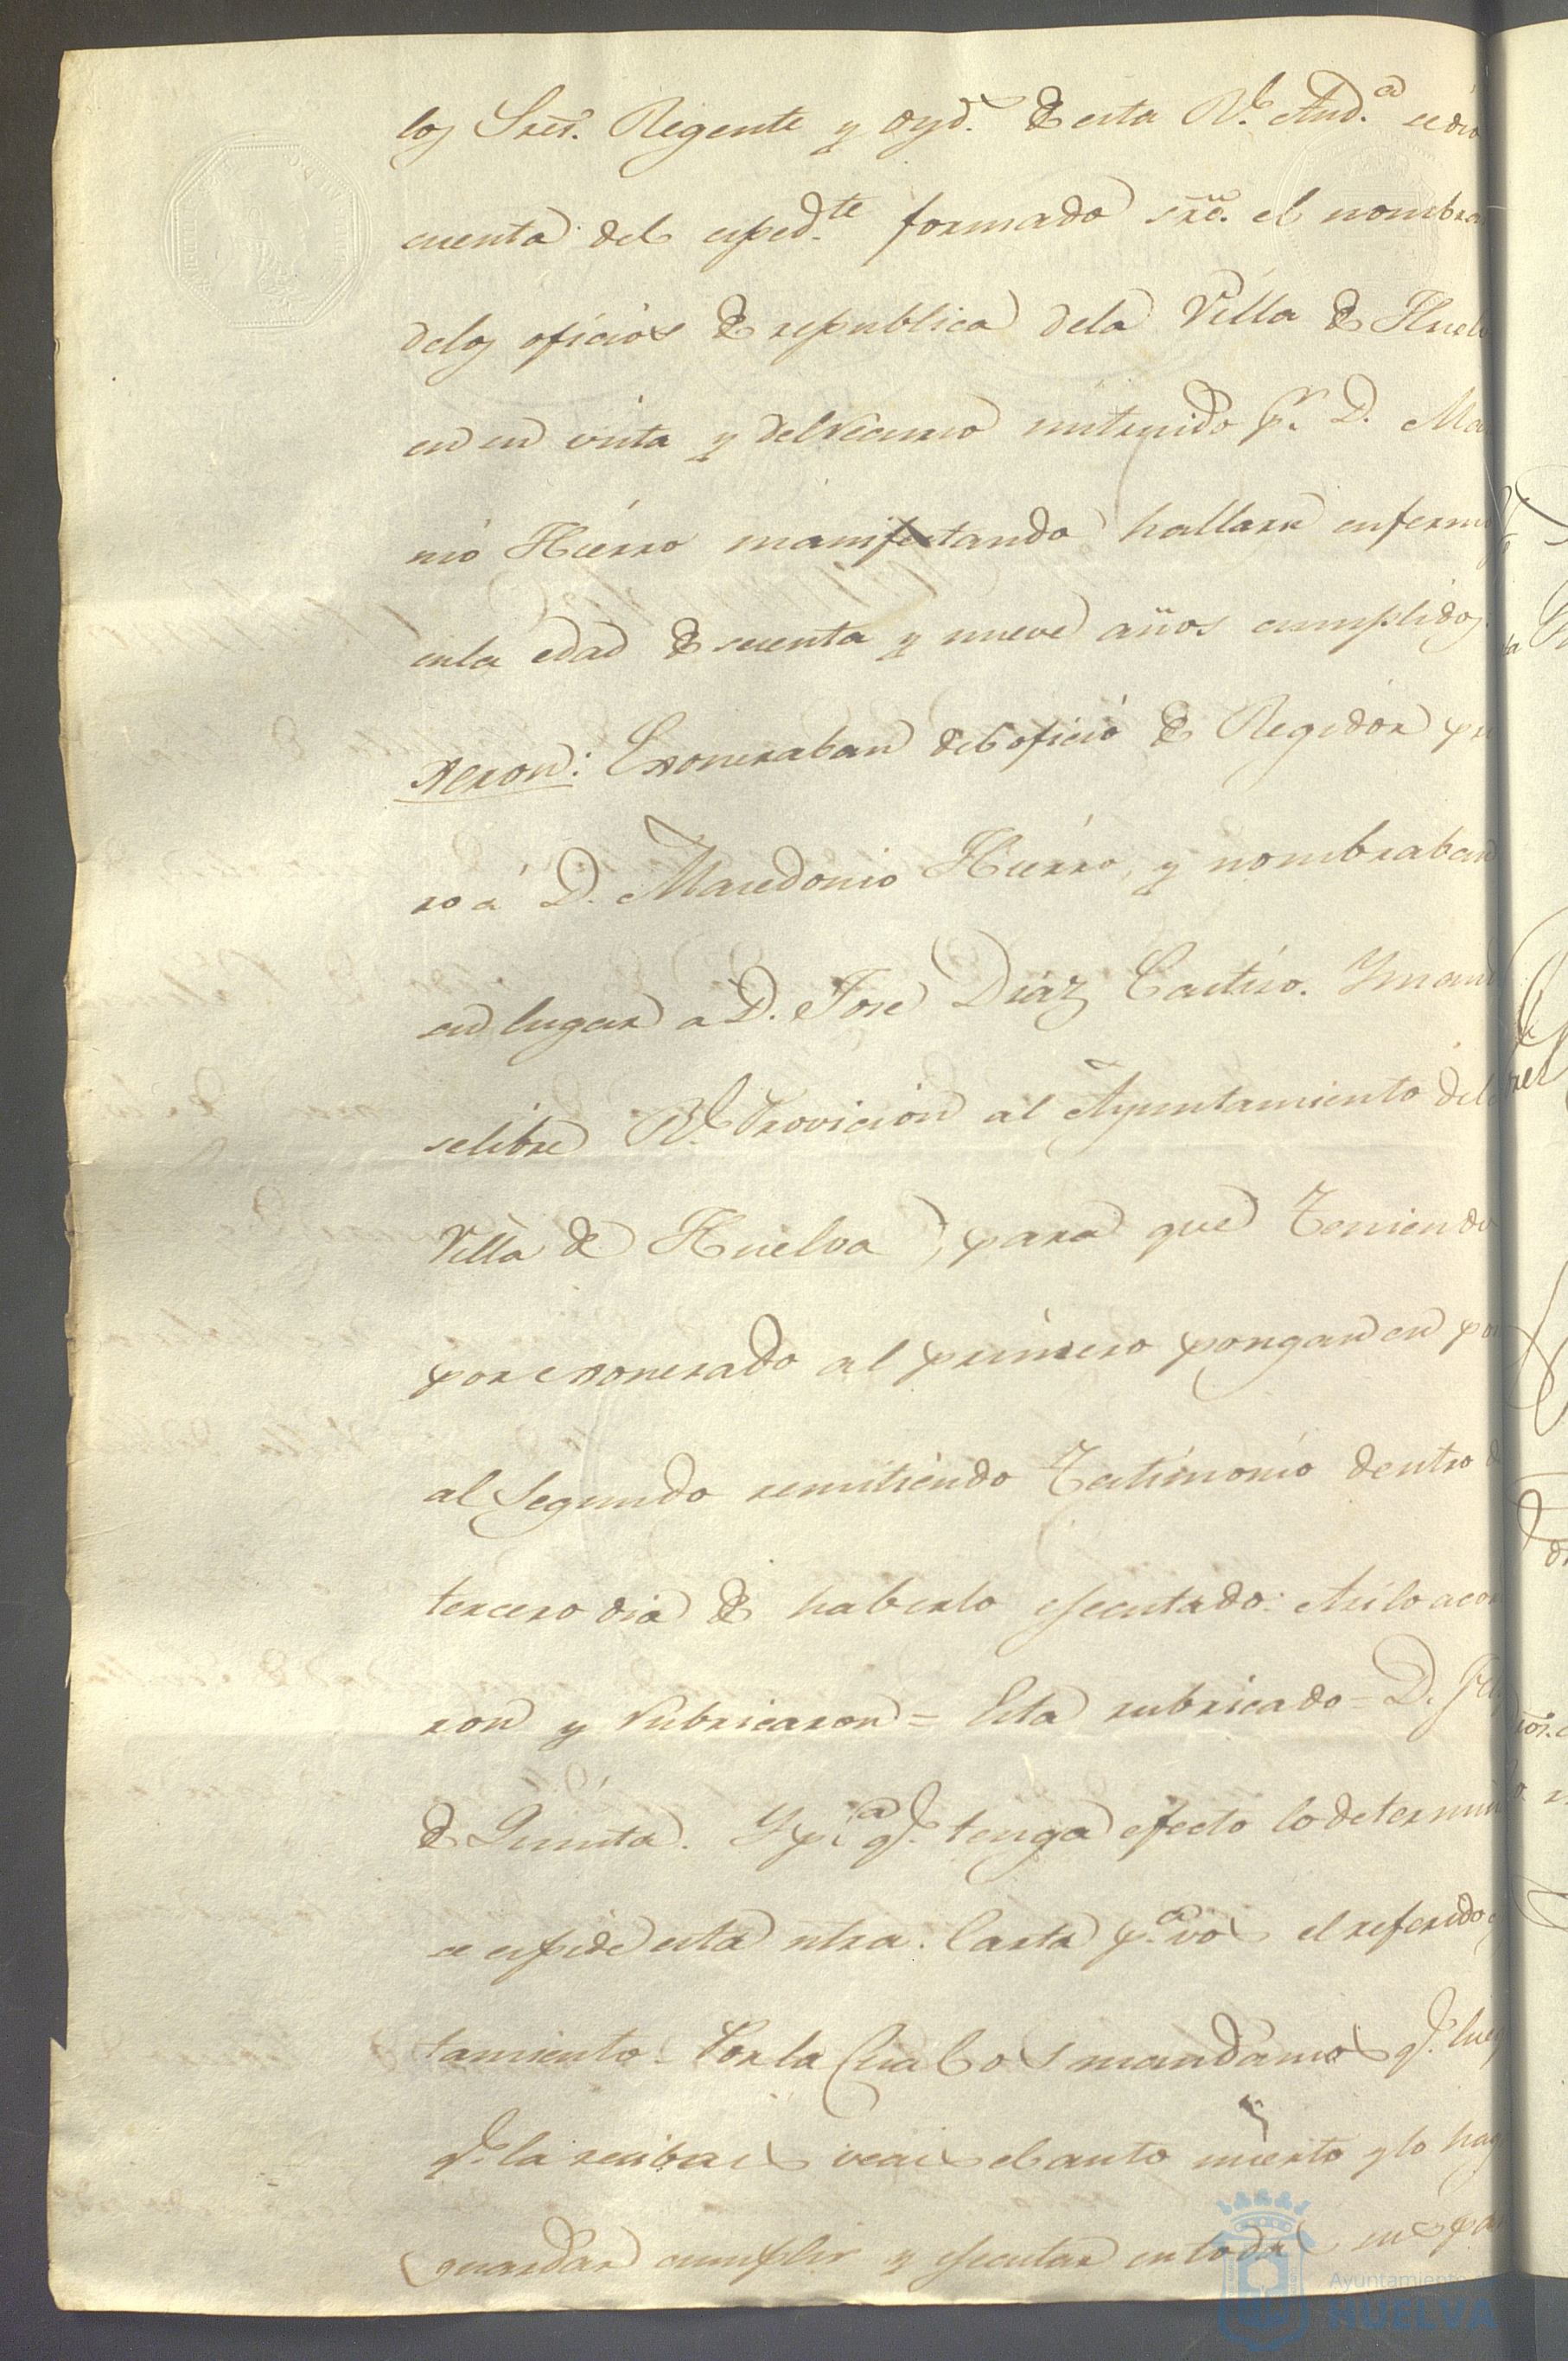 los Sres. Regente y Oyd.s de esta Rl. Aud.a se dio
cuenta del exped.te formado sre. el nombra
delos oficios de republica dela Villa de Huel
en su vista y del recurso instruido pr. D. Ma
nio Hierro manifestando hallarse enfermo y
en la edad de sesenta y nueve años cumplidos
dixeron: Exoneraban del oficio de Regidor pri
ro á D. Macedonio Hierro, y nombraban
su lugar a D. José Díaz Castiro. Y mand
se libre Rl. Provicion al Ayuntamiento dela
Villa de Huelva, para que teniendo
por exonerado al primero pongan en po
al Segundo remitiendo Testimonio dentro d
tercero dia de haberlo ejecutado: Asi lo acor
ron y rubricaron = Esta rubricado = D. F
de Quinta. Y p.a q.e tenga efecto lo determin
se espide esta ntra. Carta p.a vos el referido
tamiento. Por la Cual os mandamos q.e lueg
q.e la recibais veais el auto inserto y lo hag
guardar cumplir y ejecutar en todas sus par
Ayuntamiento de
HUELVA